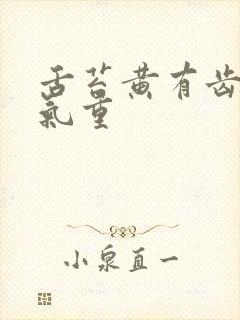 舌苔黄有齿
氣重
小泉直一